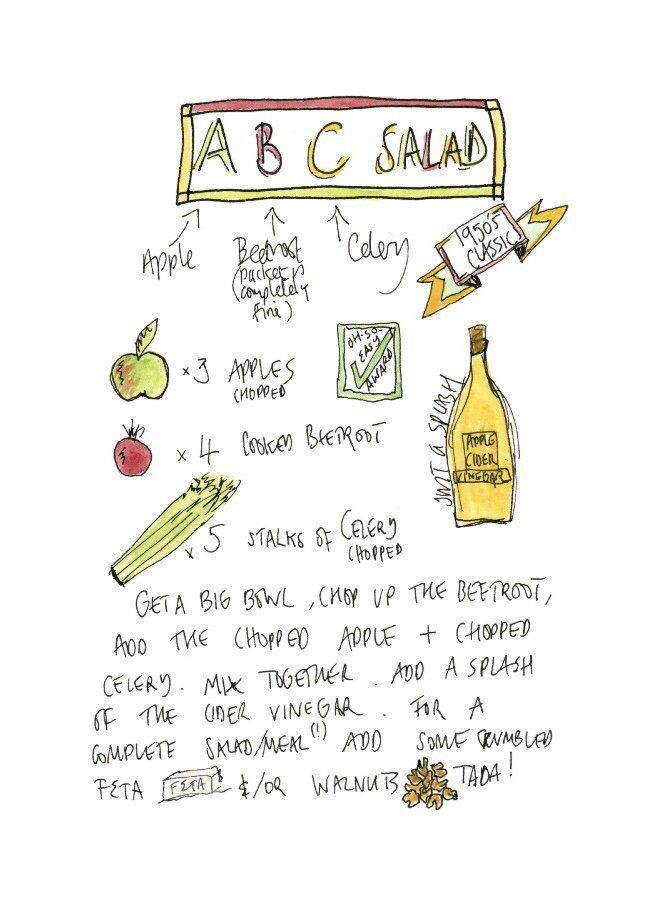 A B C SALAD
Apple
Beetroot
(packet is
completely
fine)
Celery
1950'S
CLASSIC
x 3 APPLES
CHOPPED
OH-SO-
EASY
AWARD
x 4 COOKED BEETROOT
JUST A SPLASH
APPLE
CIDER
VINEGAR
x 5 STALKS OF CELERY
CHOPPED
GET A BIG BOWL, CHOP UP THE BEETROOT,
ADD THE CHOPPED APPLE + CHOPPED
CELERY. MIX TOGETHER. ADD A SPLASH
OF THE CIDER VINEGAR. FOR A
COMPLETE SALAD/MEAL(!) ADD SOME CRUMBLED
FETA FETA &/OR WALNUTS TADA!